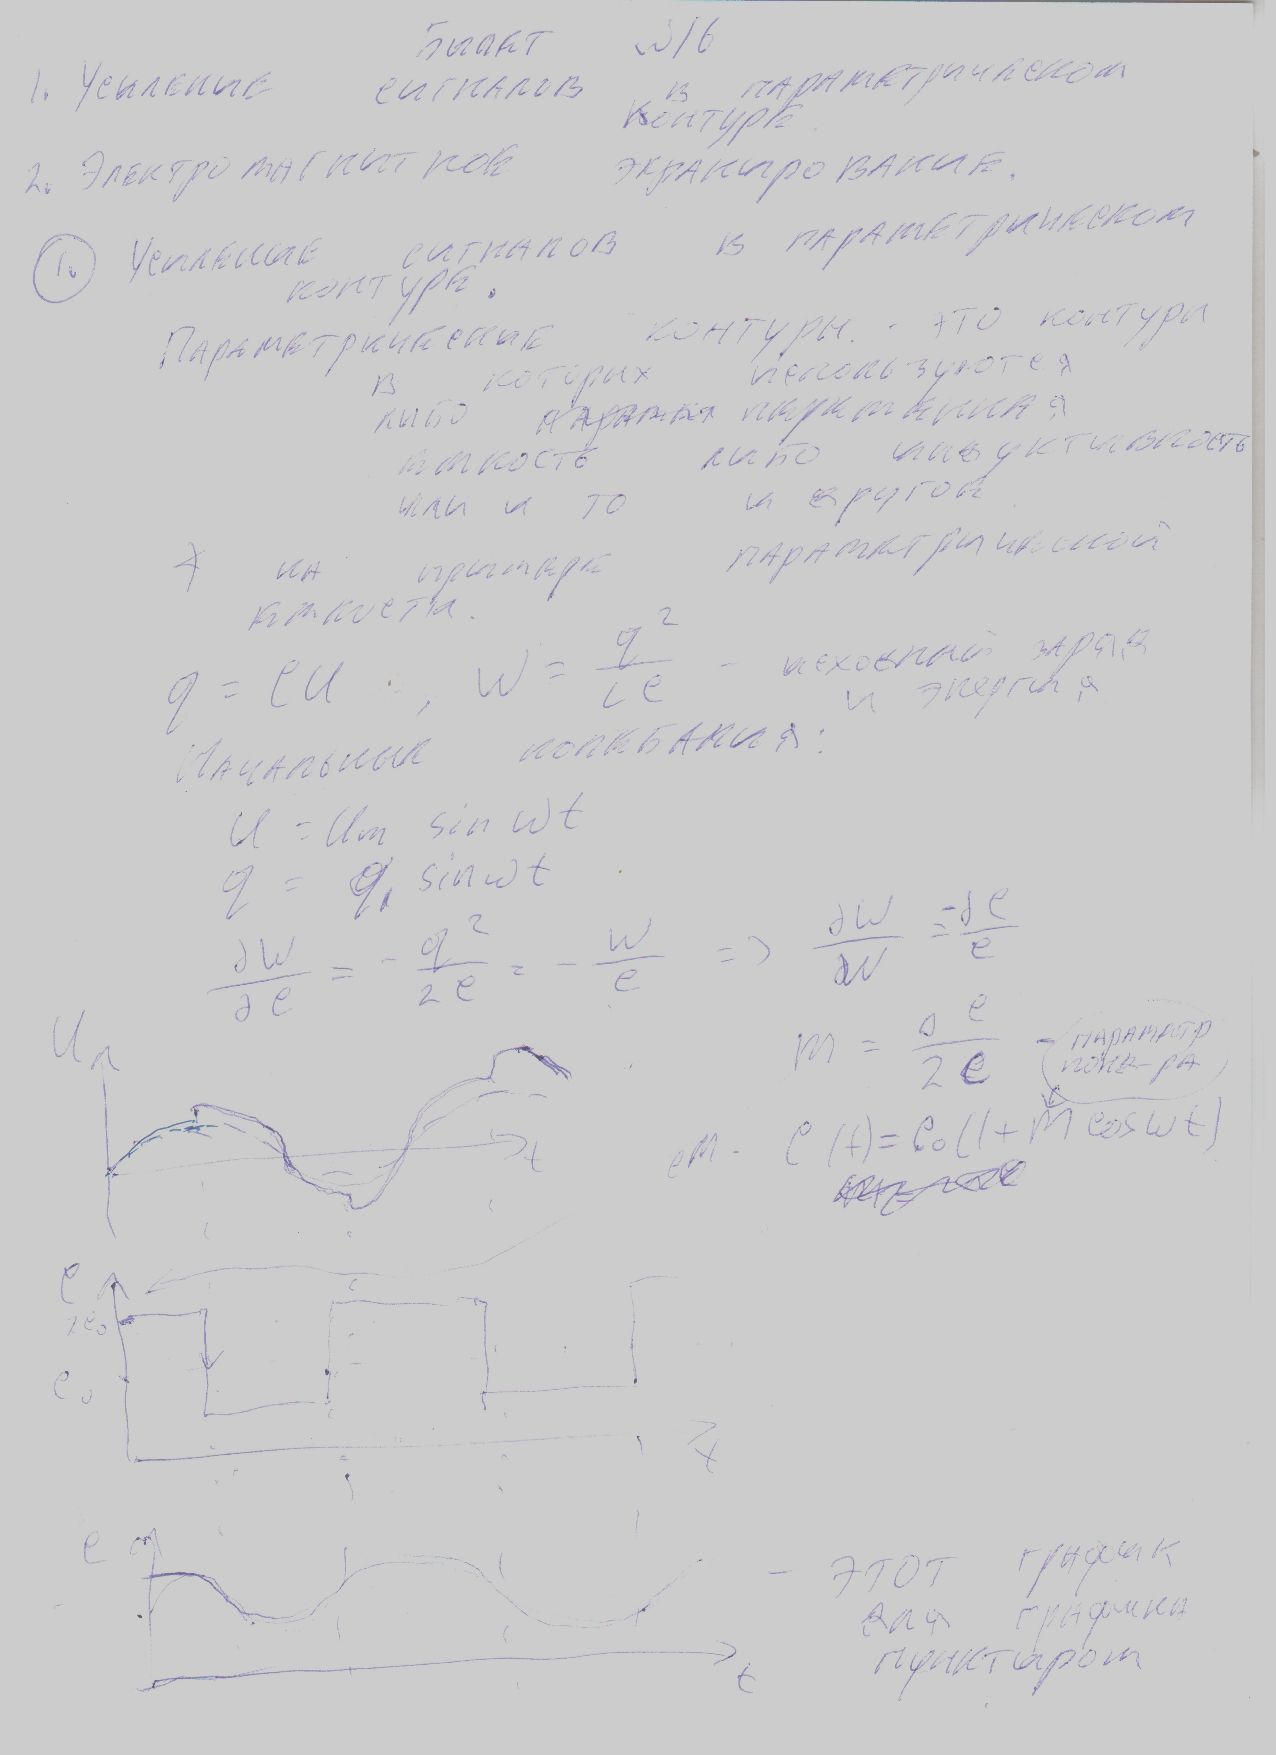 Билет №16
1. Усиление сигналов в параметрическом
контуре.
2. Электромагнитное экранирование.
1. Усиление сигналов в параметрическом
контуре.
Параметрические контуры - это контуры
в которых используются
либо переменная
емкость либо индуктивность
или и то и другое.
на примере параметрической
емкости.
q = CU , W = q²/2C - исходный заряд
и энергия
Начальные колебания:
U = Um sin ωt
q = q₁ sin ωt
∂W/∂C = - q²/2C = - W/C => ∂W/W = -∂C/C
m = ΔC/2C - параметр
C(t) = C₀(1 + m cos ωt)
U
t
C
2C₀
C₀
t
C
t
- этот график
для графика
пунктиром